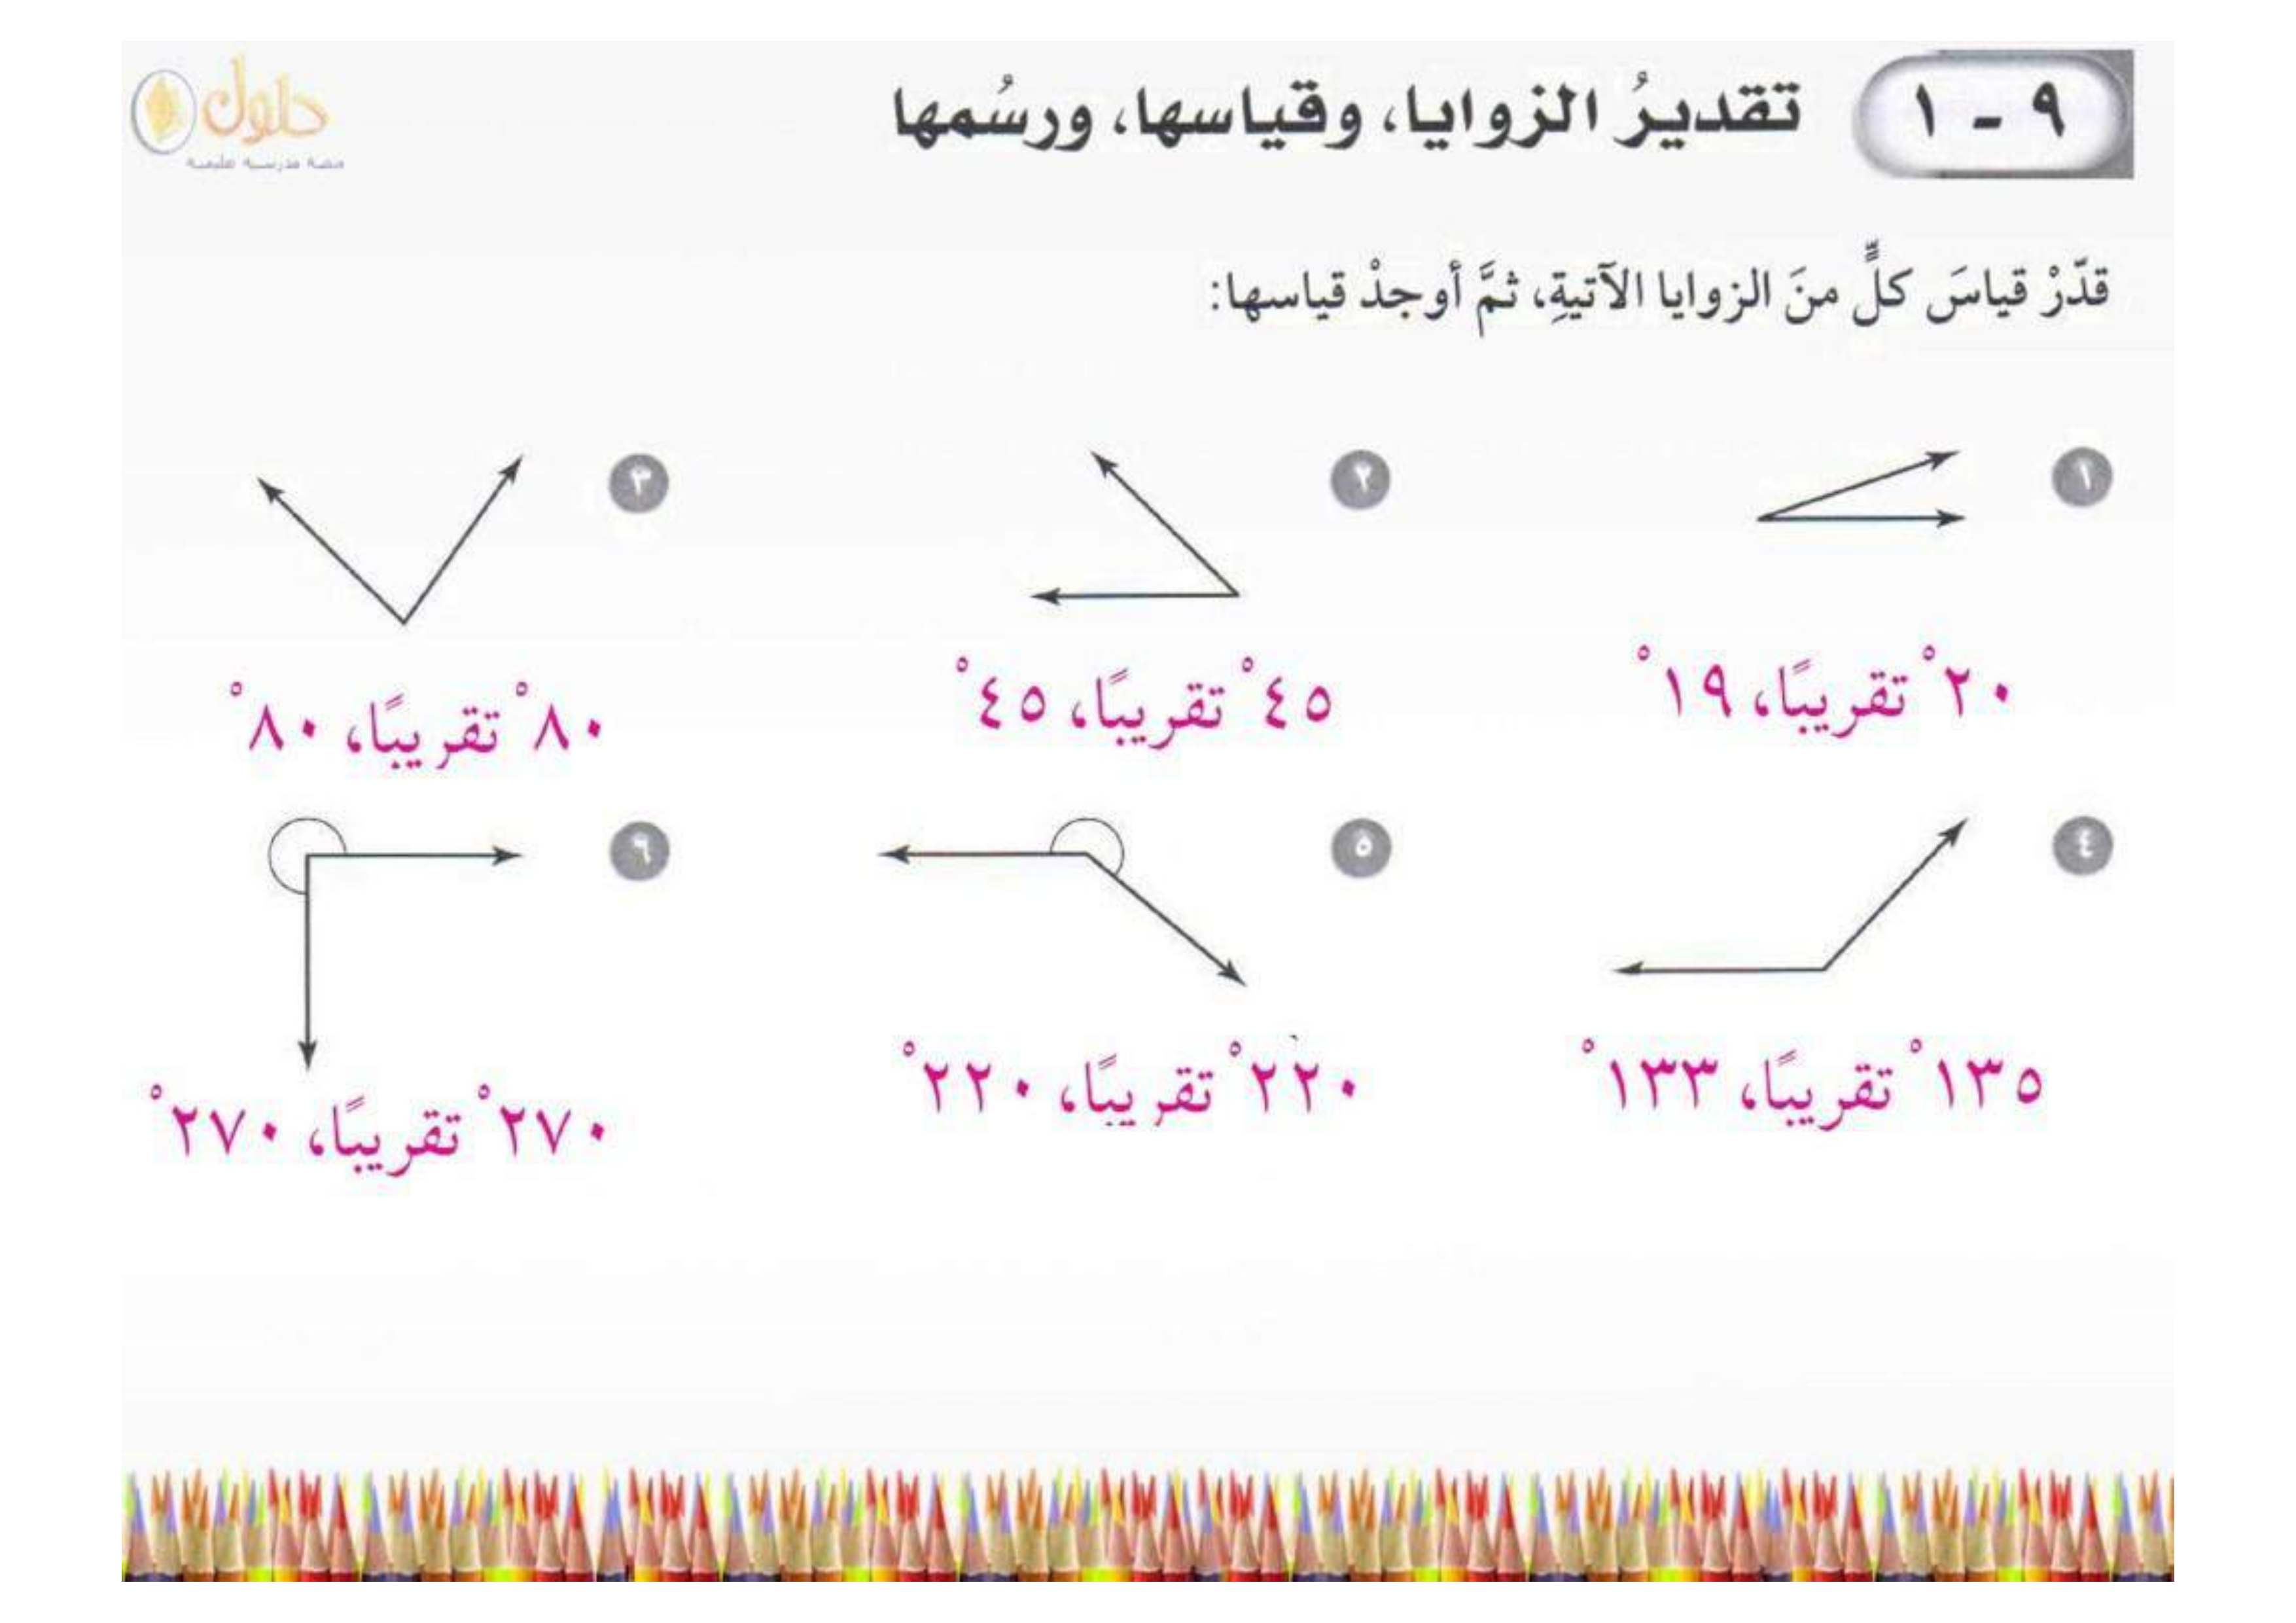 ٩ - ١ تقديرُ الزوايا، وقياسها، ورسُمها
حلول
منصة مدرسية تعليمية
قدّرْ قياسَ كلٍّ منَ الزوايا الآتيةِ، ثمَّ أوجدْ قياسها:
١ ٢ ٣
٢٠° تقريبًا، ١٩° ٤٥° تقريبًا، ٤٥° ٨٠° تقريبًا، ٨٠°
٤ ٥ ٦
١٣٥° تقريبًا، ١٣٣° ٢٢٠° تقريبًا، ٢٢٠° ٢٧٠° تقريبًا، ٢٧٠°